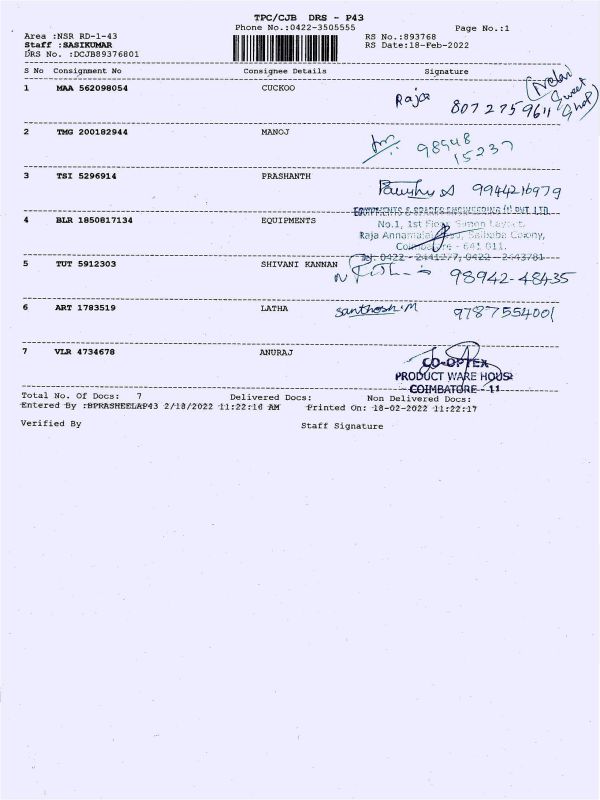 TPC/CJB DRS - P43
Phone No.:0422-3505555
Page No.:1
Area :NSR RD-1-43
RS No.:893768
Staff :SASIKUMAR
RS Date:18-Feb-2022
DRS No. :DCJB89376801
S No Consignment No Consignee Details Signature
1 MAA 562098054 CUCKOO Raja 8072759611
Sweet Shop
2 TMG 200182944 MANOJ 98948
15237
3 TSI 5296914 PRASHANTH 9944216979
EQUIPMENTS & SPARES ENGINEERING (I) PVT LTD.
4 BLR 1850817134 EQUIPMENTS No.1, 1st Floor, Simon Layout,
Raja Annamalai Road, Saibaba Colony,
Coimbatore - 641 011.
Tel: 0422 - 2441277, 0422 - 2443781
5 TUT 5912303 SHIVANI KANNAN 98942-48435
6 ART 1783519 LATHA Santhosh.M 9787554001
7 VLR 4734678 ANURAJ CO-OPTEX
PRODUCT WARE HOUSE
COIMBATORE - 11
Total No. Of Docs: 7 Delivered Docs: Non Delivered Docs:
Entered By :BPRASHEELAP43 2/18/2022 11:22:16 AM Printed On: 18-02-2022 11:22:17
Verified By Staff Signature